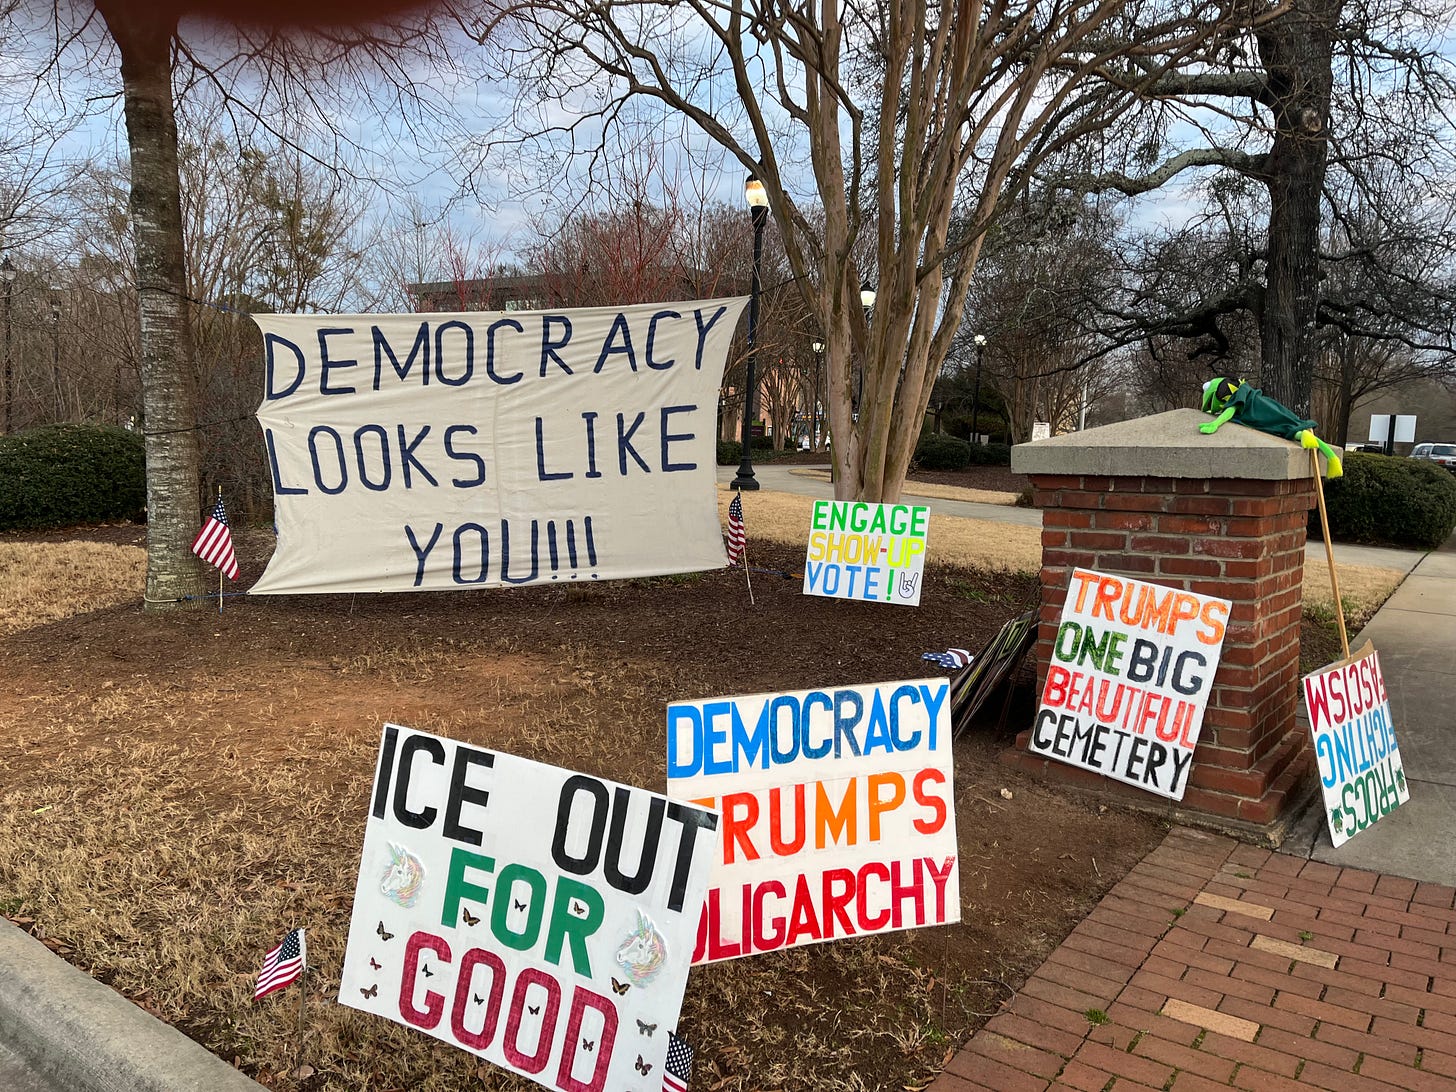 DEMOCRACY
LOOKS LIKE
YOU!!!
ENGAGE
SHOW-UP
VOTE!
TRUMPS
ONE BIG
BEAUTIFUL
CEMETERY
FROGS
FIGHTING
FASCISM
DEMOCRACY
TRUMPS
OLIGARCHY
ICE OUT
FOR
GOOD